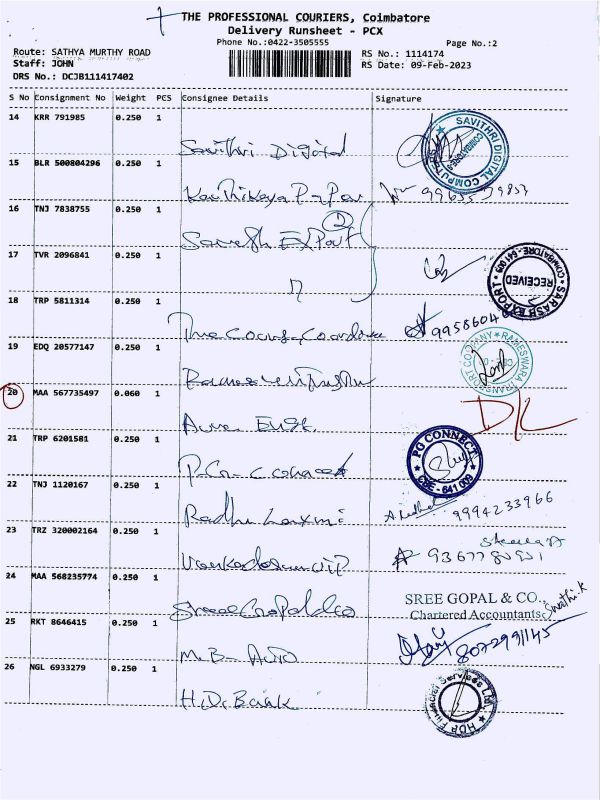 THE PROFESSIONAL COURIERS, Coimbatore
Delivery Runsheet - PCX
Phone No.:0422-3505555
Page No.:2
Route: SATHYA MURTHY ROAD
RS No.: 1114174
Staff: JOHN
RS Date: 09-Feb-2023
DRS No.: DCJB111417402
S No Consignment No Weight PCS Consignee Details Signature
14 KRR 791985 0.250 1
Savithri Digital
SAVITHRI DIGITAL COMPUTERS
15 BLR 500804296 0.250 1
16 TNJ 7838755 0.250 1
Export
17 TVR 2096841 0.250 1
SARASH EXPORT
COIMBATORE - 641 009
RECEIVED
18 TRP 5811314 0.250 1
The
19 EDQ 20577147 0.250 1
RAMESWARA TRANSPORT COMPANY
20 MAA 567735497 0.060 1
21 TRP 6201581 0.250 1
PG CONNECT
CBE - 641 009
22 TNJ 1120167 0.250 1
Radhu Laxmi
9994233966
23 TRZ 320002164 0.250 1
24 MAA 568235774 0.250 1
Sree Gopal &co
SREE GOPAL & CO.,
Chartered Accountants
Swathi.K
25 RKT 8646415 1
M.B
8072991145
26 NGL 6933279 0.250 1
Bank
HDB Financial Services Ltd